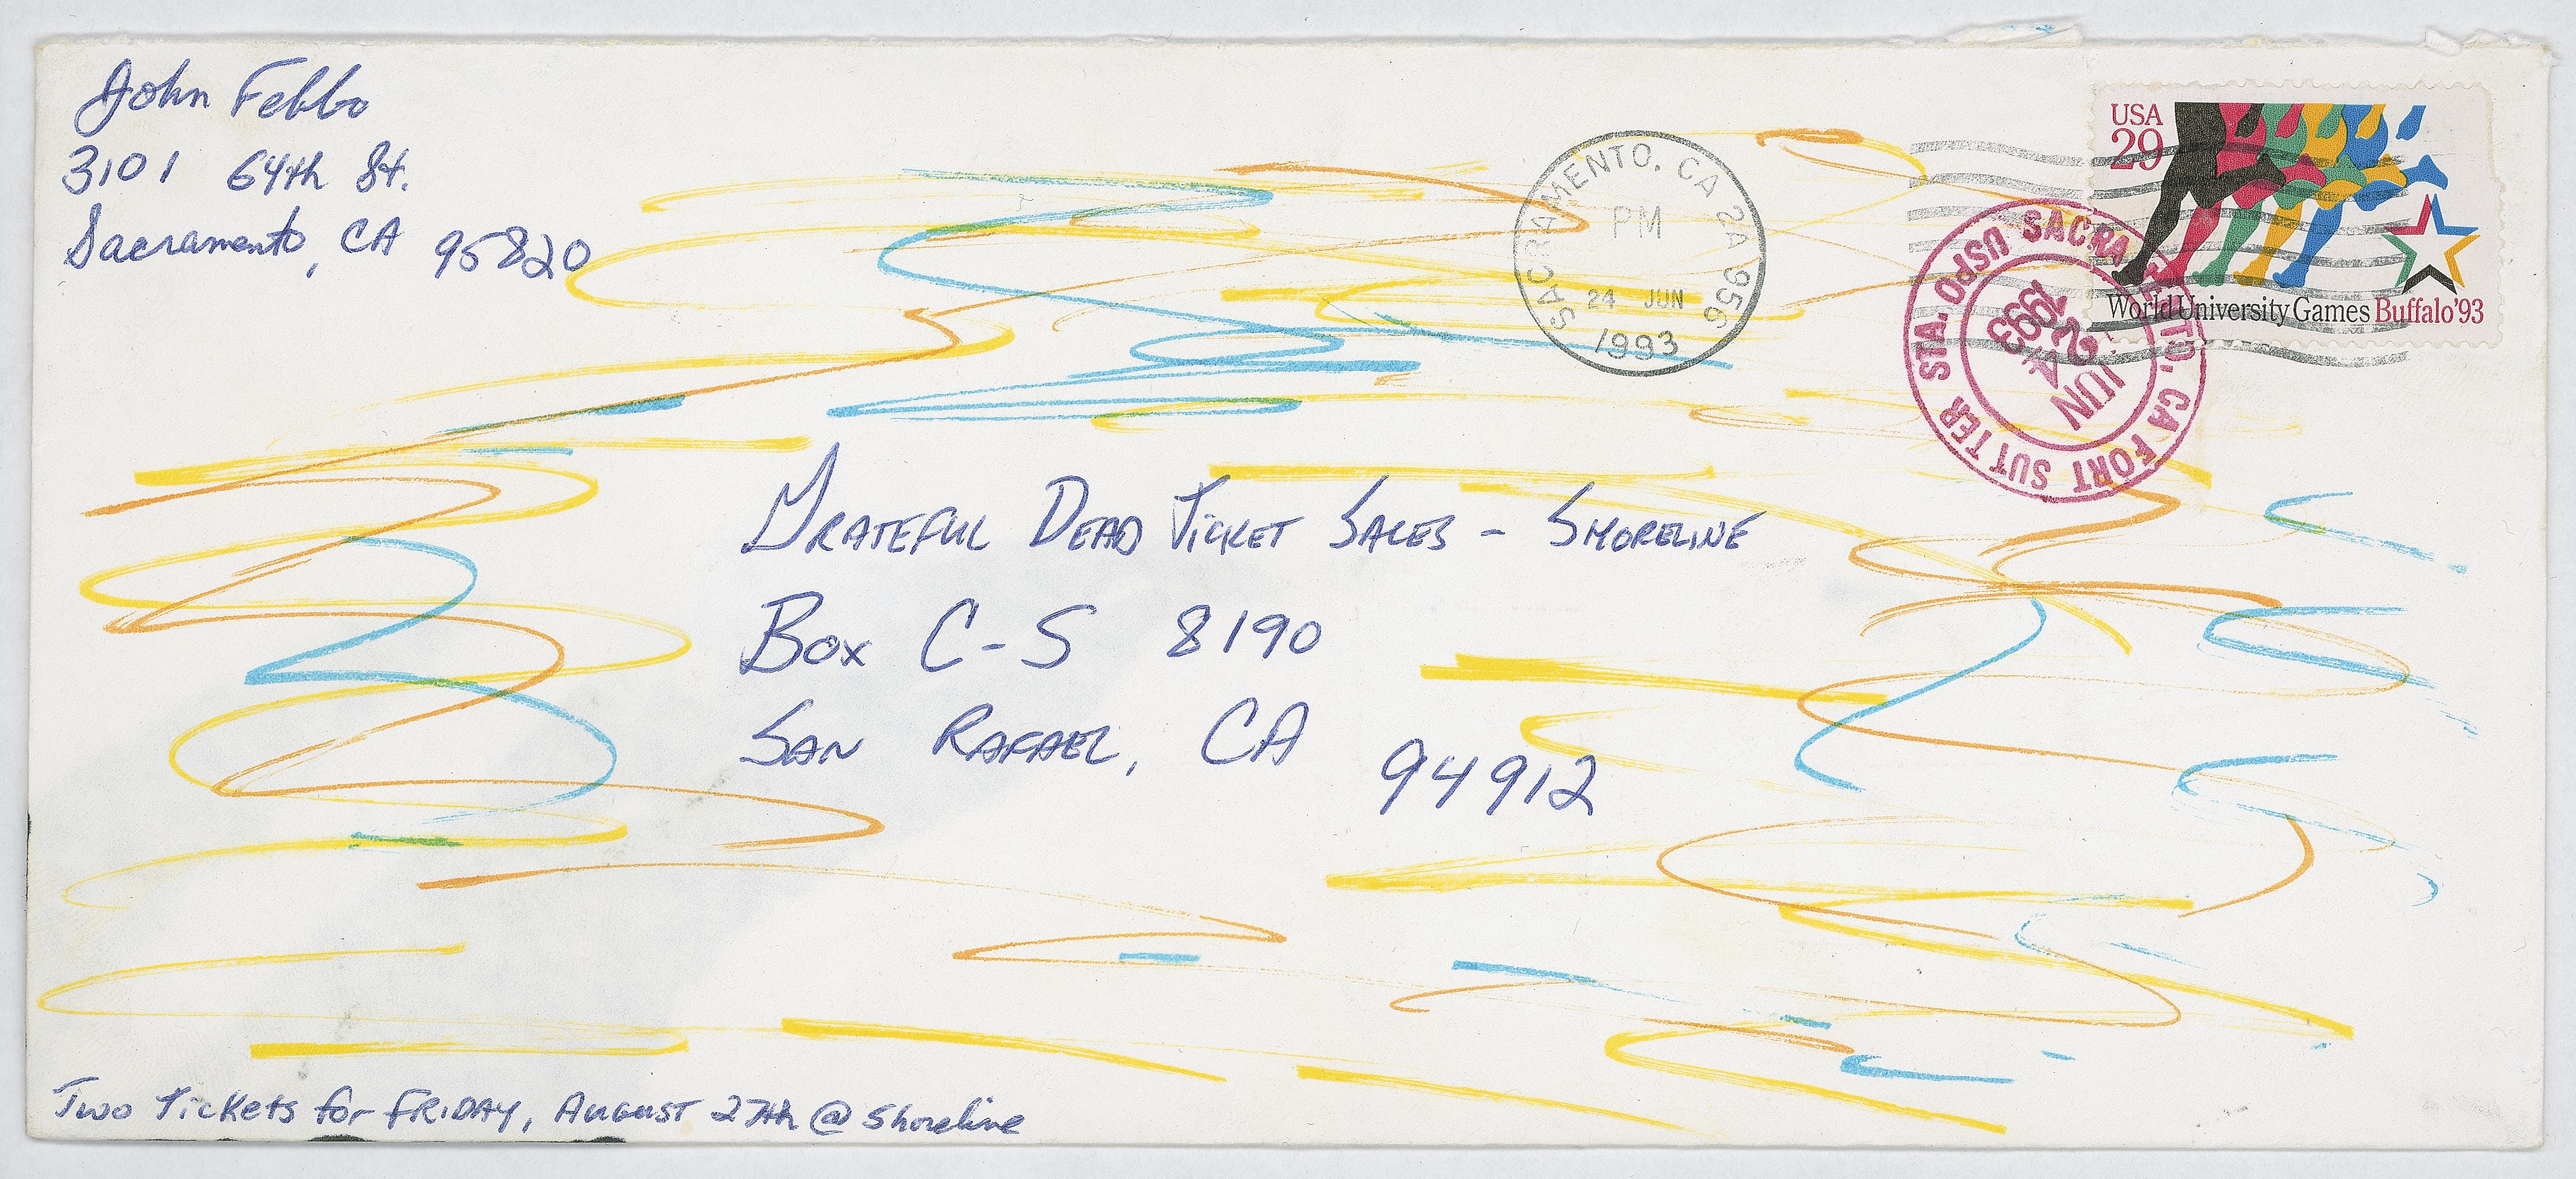 John Febbo
3101 64th St.
Sacramento, CA 95820
SACRAMENTO, CA 2A 956
PM
24 JUN
1993
USA
29
World University Games Buffalo '93
USPO. SACRAMENTO, CA FORT SUTTER STA.
JUN
24
1993
GRATEFUL DEAD TICKET SALES - SHORELINE
BOX C-S 8190
SAN RAFAEL, CA 94912
Two Tickets for FRIDAY, AUGUST 27th @ Shoreline